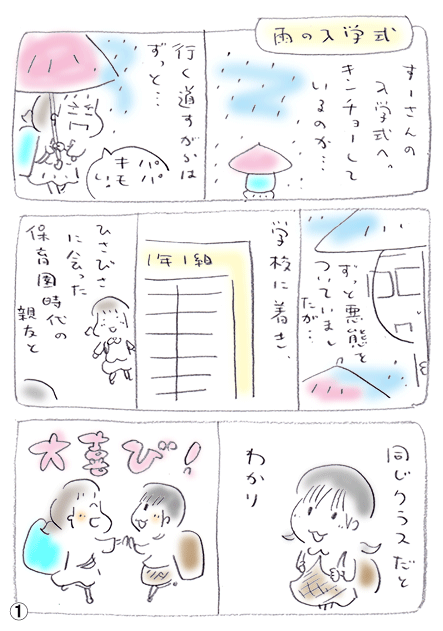 雨の入学式
すーさんの
入学式へ。
キンチョーして
いるのか…
行く道すがらは
ずっと…
パパ
キモい
ずっと悪態を
ついていまし
たが…
学校に着き、
1年1組
ひさびさ
に会った
保育園時代の
親友と
同じクラスだと
わかり
大喜び!
①